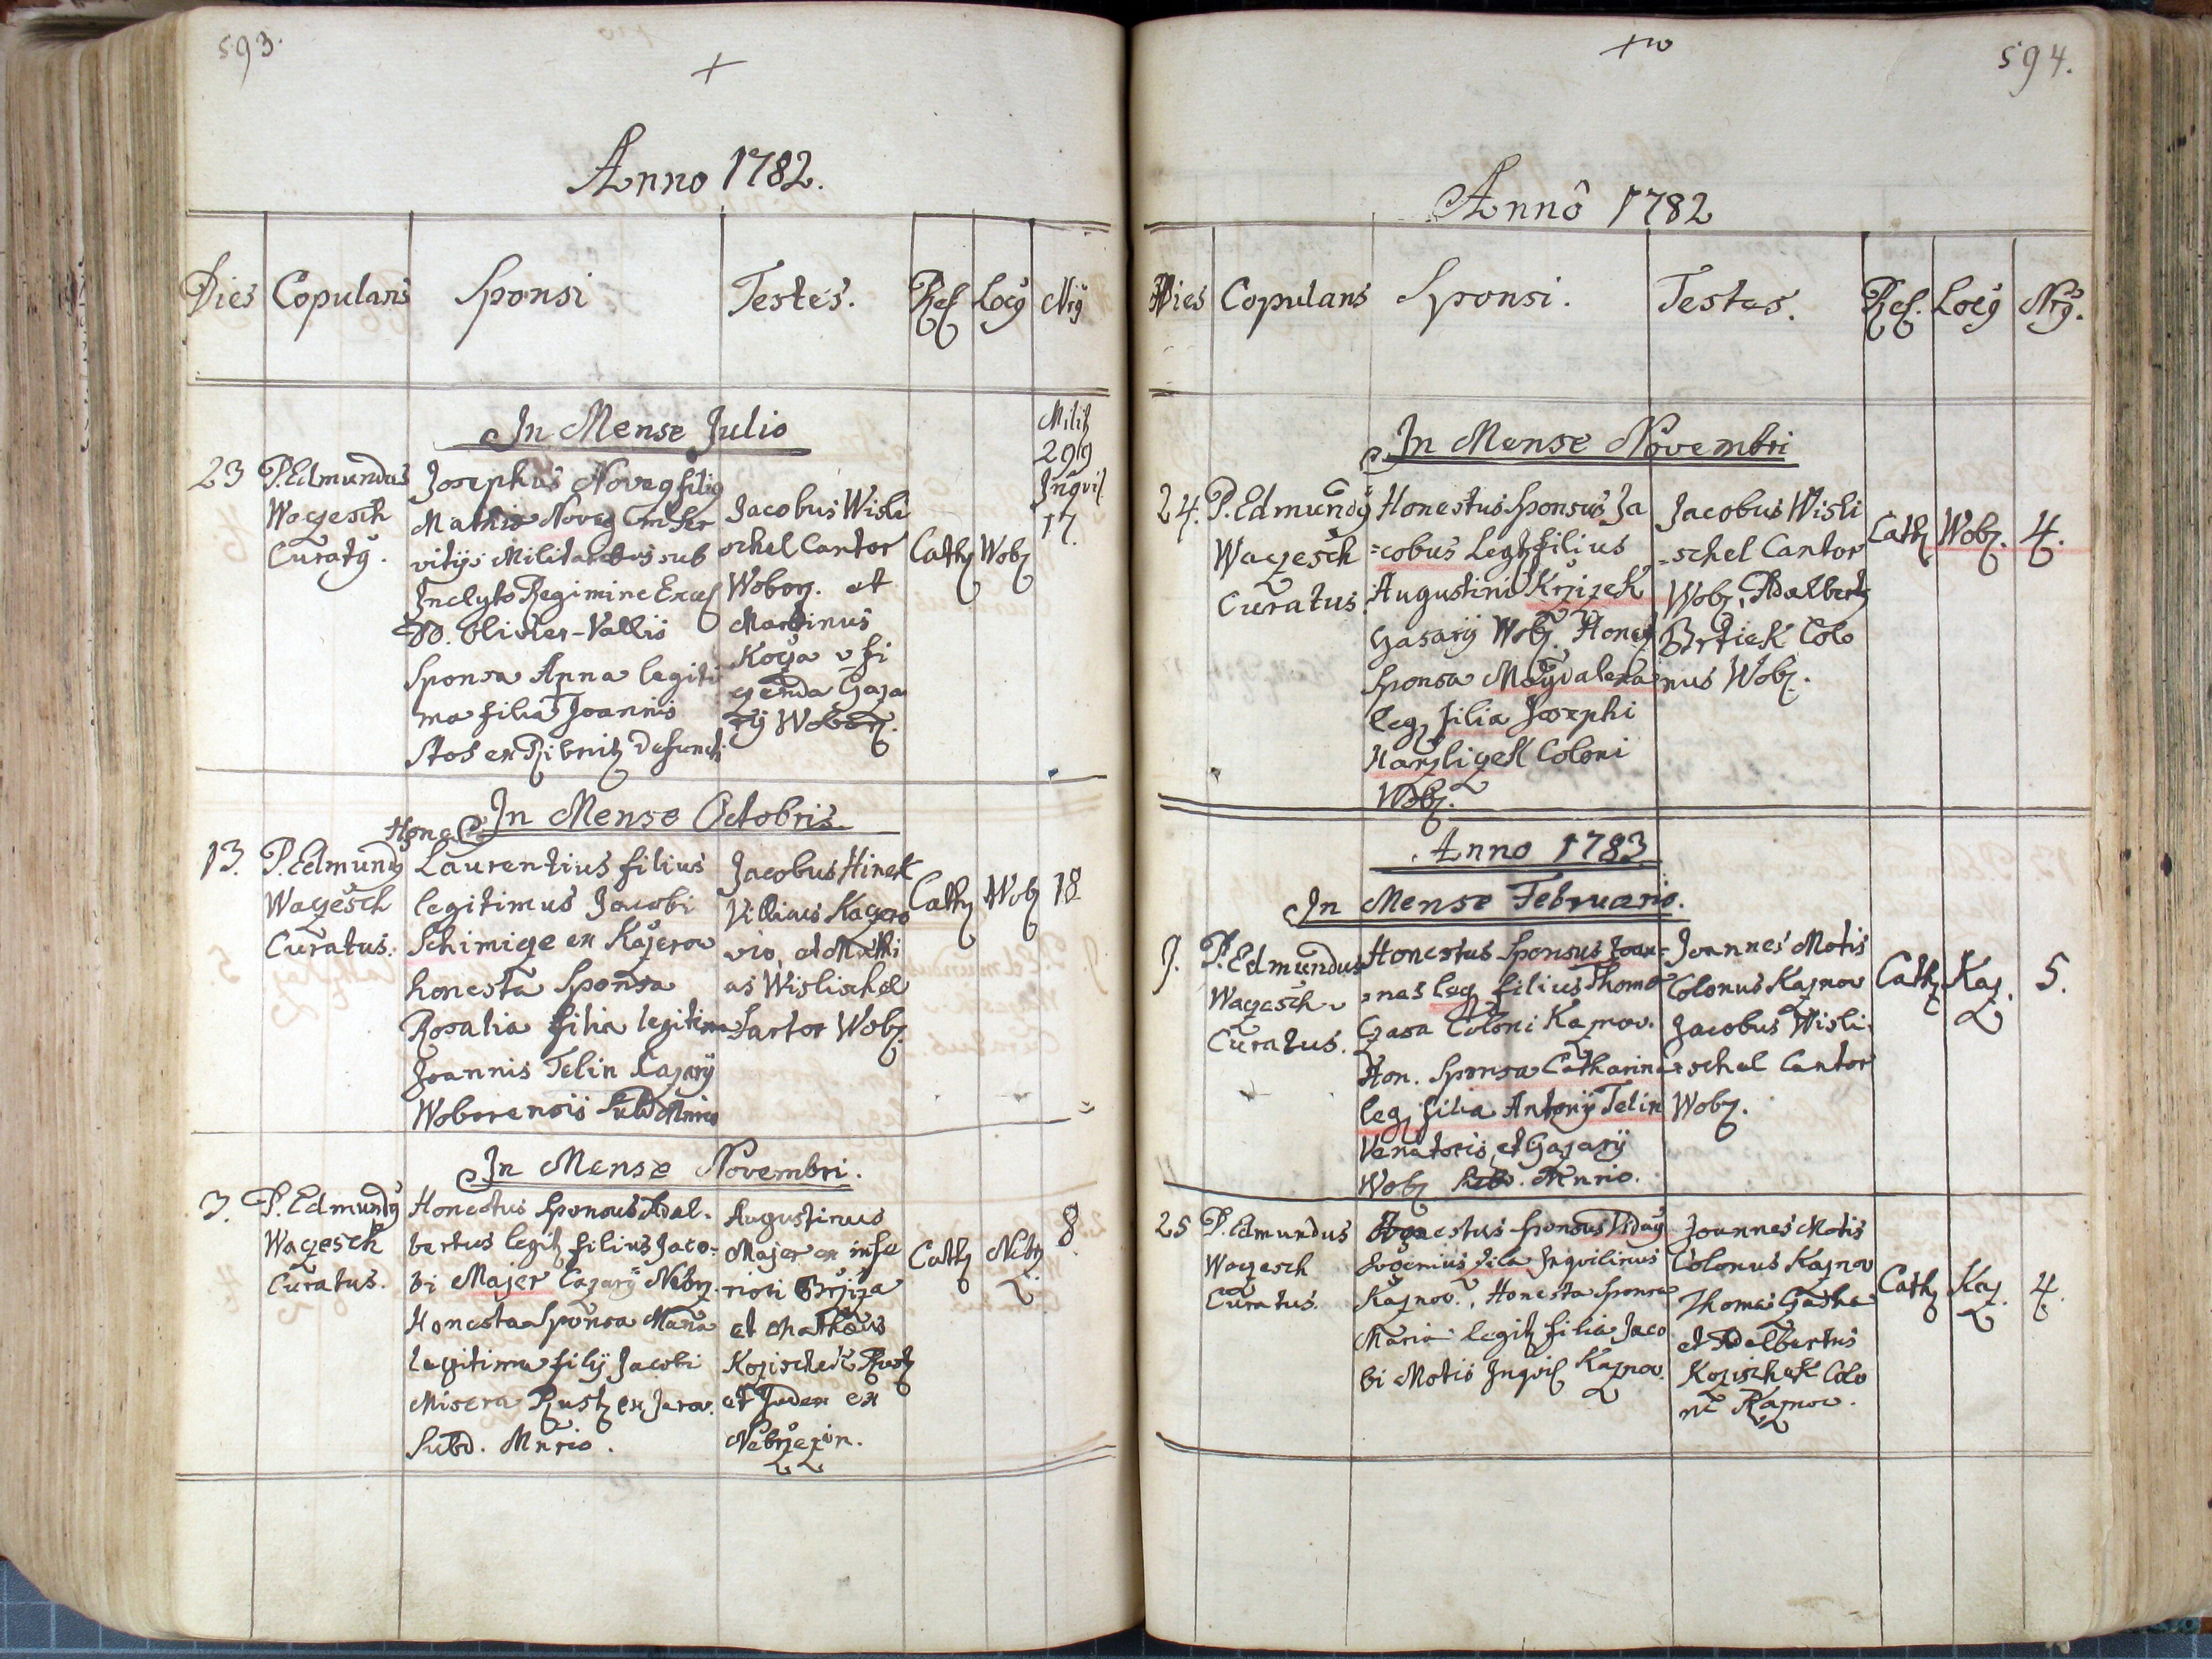 593.
Anno 1782.
Dies Copulans Sponsi Testes. Rel Locg Nrg
In Mense Julio
Milit
299
Inqvil
17.
23 P. Edmundus
Waczesch
Curatg.
Josephus Noveg filig
Mathis Noveg in Ser
vitijs Militaribus sub
Inclyto Regimine Excel
D. Olivier-Vallis
Sponsa Anna legiti
ma filia Joannis
Stos ex Ribnitz defuncti
Jacobus Wisli
schel Cantor
Woborz. et
Martinus
Koza
Woborz.
Cath Wob
In Mense Octobris
Hone
13. P. Edmundg
Waczesch
Curatus.
Laurentius filius
legitimus Jacobi
Schimicze ex Kazerow
honesta Sponsa
Rosalia filia legitima
Joannis Telin Cazarij
Woborensis
Jacobus Hinek
Villicus Kazero
vio, et Mathi
as Wislischel
Sartor Wobz.
Cath Wob 18
In Mense Novembri.
3. P. Edmundg
Waczesch
Curatus.
Honestus Sponsus Adal-
bertus legit filius Jaco-
bi Majer Cazarij Nebrz.
Honesta Sponsa Maria
legitima filij Jacobi
Misera Rust ex Jarov.
Subd. Mnrio.
Augustinus
Majer ex infe
riori Brziza
et Mathaus
Kozischek Rust
et Judex ex
Nebrzezin.
Cath Neb 8
594.
Anno 1782
Dies Copulans Sponsi. Testes. Rel. Locg Nrg.
In Mense Novembri
24. P. Edmundg
Waczesch
Curatus.
Honestus Sponsus Ja
=cobus Legit filius
Augustini Krzizek
Gasarij Wobz. Honest
Sponsa Magdalena
leg filia Josephi
Harzliczek Coloni
Wobz.
Jacobus Wisli
=schel Cantor
Wobz. Adalbertg
Brticek Colo
nus Wobz.
Cath Wobz. 4.
Anno 1783
In Mense Februario.
9. P. Edmundus
Waczesch
Curatus.
Honestus Sponsus Joan-
=nes leg filius Thomo
Gasa Coloni Kaznov.
Hon. Sponsa Catharina
leg filia Antonij Telin
Venatoris et Gazarij
Wobz Subd. Mnrio.
Joannes Motis
Colonus Kaznov
Jacobus Wisli-
=schel Cantor
Wobz.
Cath Kaz. 5.
25 P. Edmundus
Waczesch
Curatus.
Honestus Sponsus Vidug
Inqvilinus
Kaznov., Honesta Sponsa
Maria legit filia Jaco
bi Motis Inqvil Kaznov.
Joannes Motis
Colonus Kaznov
Thomas Gasha
et Adelbertus
Kozischek Colo
Kaznov.
Cath Kaz. 4.